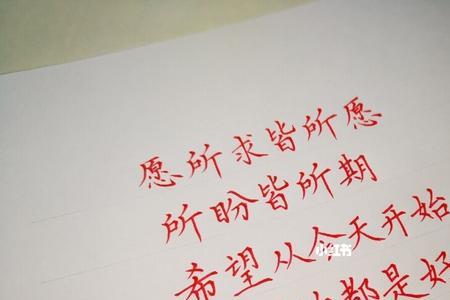 愿所求皆所愿
所盼皆所期
希望从今天开始
都是好
小红书